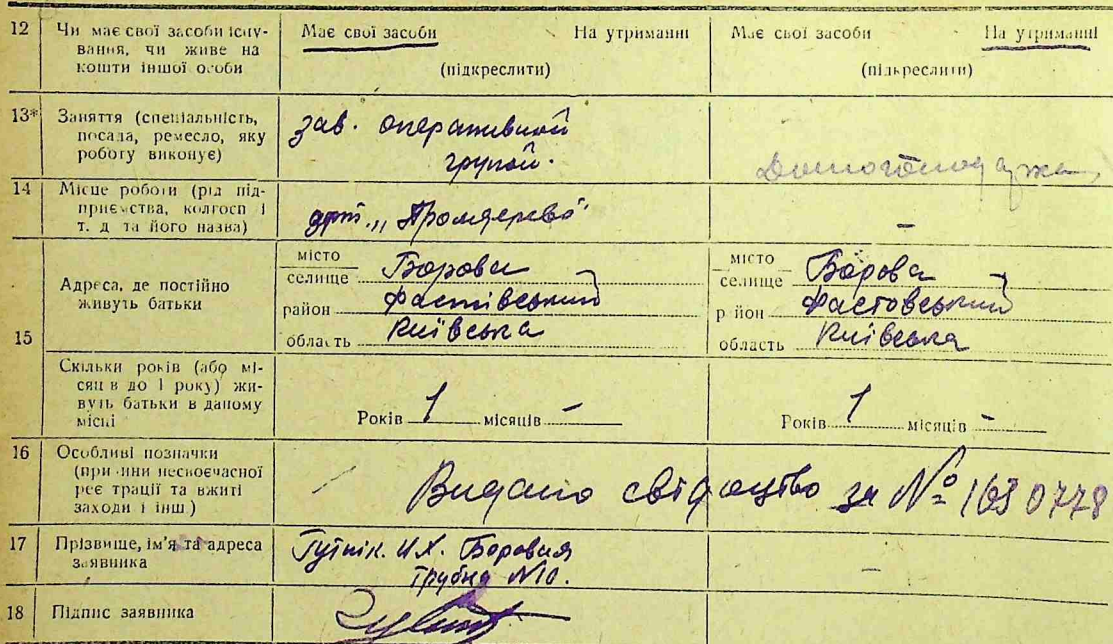 12 Чи має свої засоби існу-
вання, чи живе на
кошти іншої особи
Має свої засоби На утриманні
(підкреслити)
Має свої засоби На утриманні
(підкреслити)
13* Заняття (спеціальність,
посада, ремесло, яку
роботу виконує)
зав. оперативной
групой.
Домогосподарка
14 Місце роботи (рід під-
приємства, колгосп і
т. д та його назва)
арт. „Промдерево"
–
15 Адреса, де постійно
живуть батьки
місто
селище Борова
район Фастівський
область Київська
місто
селище Борова
р йон Фастовський
область Київська
Скільки років (або мі-
сяц в до 1 року) жи-
вуть батьки в даному
місці
Років 1 місяців –
Років 1 місяців –
16 Особливі позначки
(при ини несвоєчасної
реє трації та вжиті
заходи і інш)
Видано свідоцтво за № 1630778
17 Прізвище, ім'я та адреса
заявника
Гутнік. И.Х. Боровая
Трубна №10.
–
18 Підпис заявника